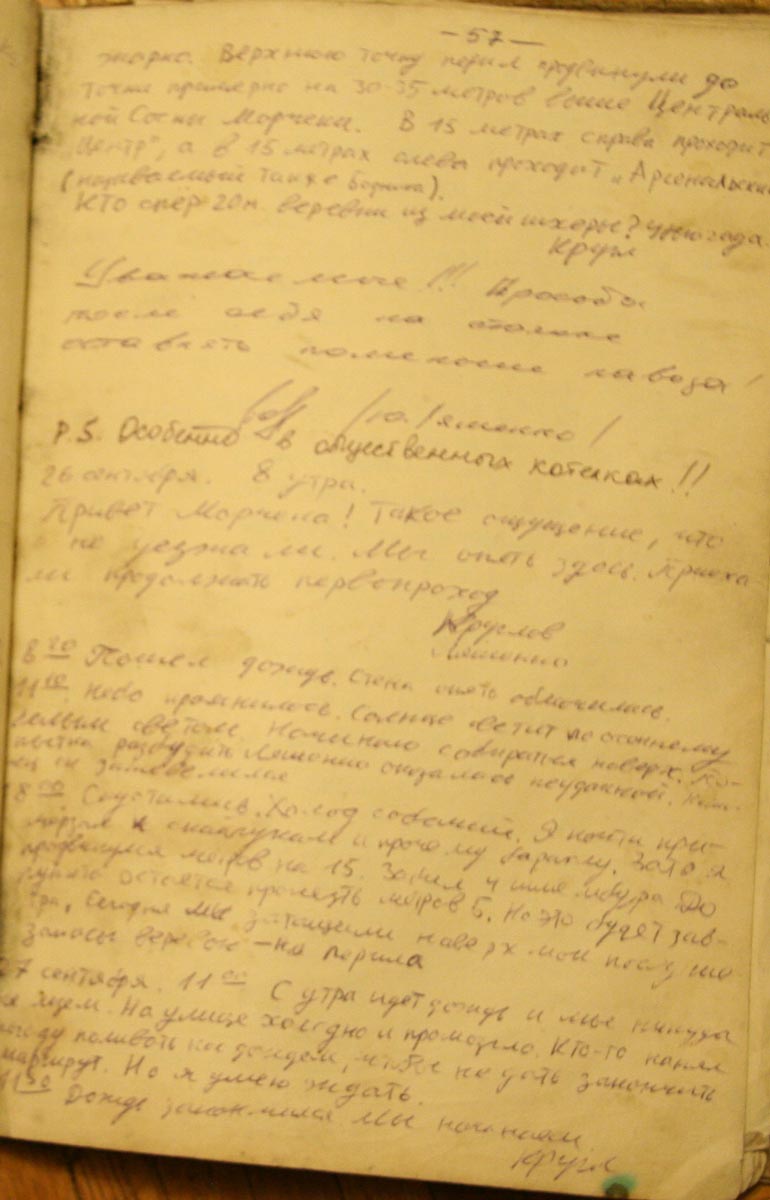 — 57 —
жарко. Верхнюю точку перил продвинули до
точки примерно на 30-35 метров выше Централь
ной Сосны Марчеки. В 15 метрах справа проходит
"Центр", а в 15 метрах слева проходит "Арсенальский
(называемый также
Кто спёр 20м. верёвки из моей шхеры? Чья
Кругл
Уважаемые!!! Просьба
после себя на стоянке
оставлять поменьше навоза!
/Ю. Ляшенко/
P.S. Особенно в общественных котелках!!
26 сентября. 8 утра.
Привет Марчека! Такое ощущение, что
не уезжали. Мы опять здесь. Приеха
ли продолжать первопроход
Круглов
Ляшенко
8 20 Пошел дождь. Стена опять облачилась.
11 10. Небо прояснилось. Солнце светит по осеннему
светом. Начинаю собираться наверх. По-
пытка разбудить Ляшенко оказалась неудачной.
не зашевелился
8 00 Спустились. Холод собачий. Я почти при-
мёрз к и прочему барахлу. Зато я
продвинулся метров на 15. Забил 4 шлямбура До
остается пролезть метров 5. Но это будет зав-
тра, Сегодня мы затащили наверх мои последние
запасы веревок – на перила
27 сентября. 11 00 С утра идет дождь и мы никуда
не идем. На улице холодно и промозгло. Кто-то нанял
погоду поливать нас дождем, чтобы не дать закончить
маршрут. Но я умею ждать.
11 30 Дождь закончился. Мы начинаем
Кругл